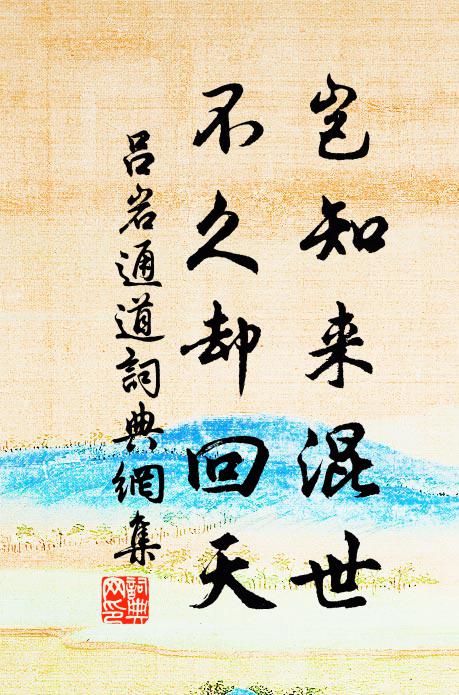 岂知来混世
不久却回天
吕岩通道詞典網集
詞典网印